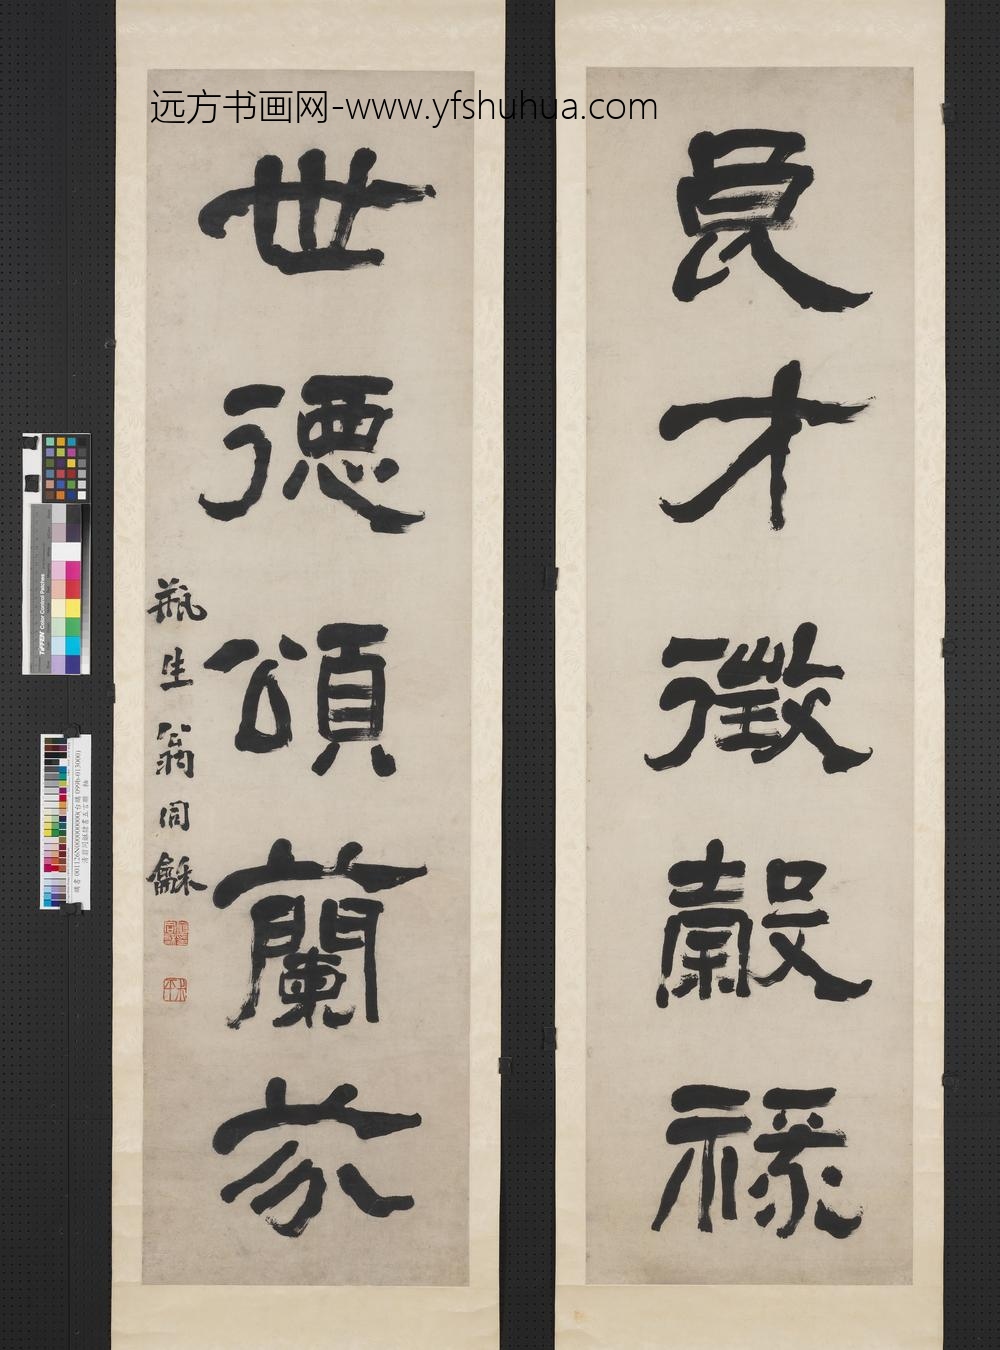 远方书画网-www.yfshuhua.com
良才徵穀祿
世德頌蘭芬
瓶生翁同龢
TIFFEN Color Control Patches